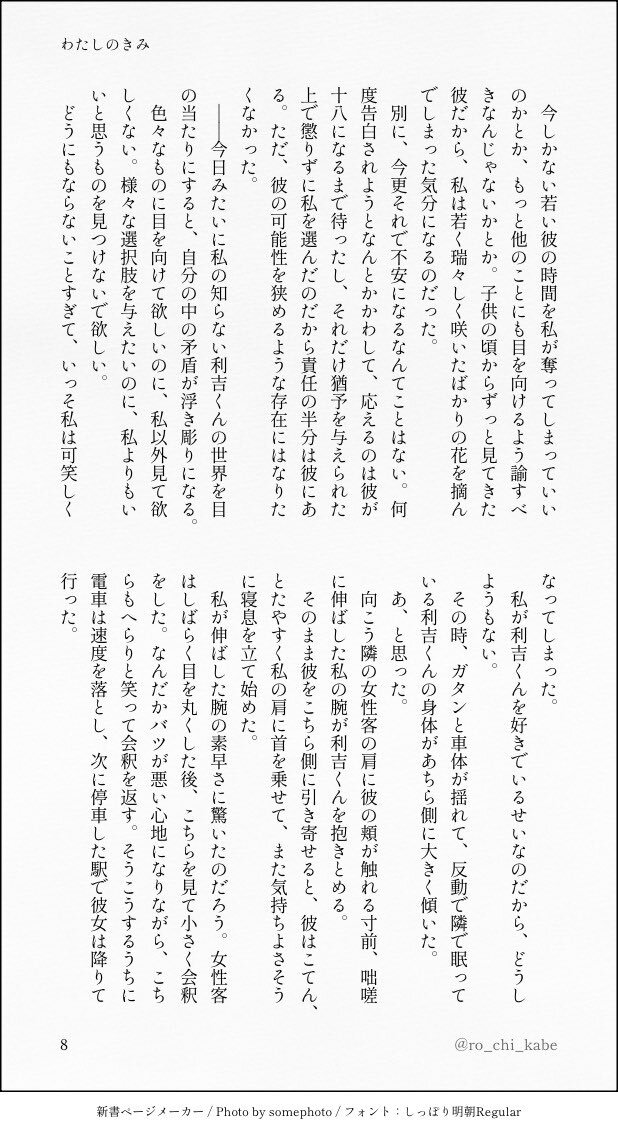 わたしのきみ
　今しかない若い彼の時間を私が奪ってしまっていい
のかとか、もっと他のことにも目を向けるよう諭すべ
きなんじゃないかとか。子供の頃からずっと見てきた
彼だから、私は若く瑞々しく咲いたばかりの花を摘ん
でしまった気分になるのだった。
　別に、今更それで不安になるなんてことはない。何
度告白されようとなんとかかわして、応えるのは彼が
十八になるまで待ったし、それだけ猶予を与えられた
上で懲りずに私を選んだのだから責任の半分は彼にあ
る。ただ、彼の可能性を狭めるような存在にはなりた
くなかった。
　――今日みたいに私の知らない利吉くんの世界を目
の当たりにすると、自分の中の矛盾が浮き彫りになる。
　色々なものに目を向けて欲しいのに、私以外見て欲
しくない。様々な選択肢を与えたいのに、私よりもい
いと思うものを見つけないで欲しい。
　どうにもならないことすぎて、いっそ私は可笑しく
なってしまった。
　私が利吉くんを好きでいるせいなのだから、どうし
ようもない。
　その時、ガタンと車体が揺れて、反動で隣で眠って
いる利吉くんの身体があちら側に大きく傾いた。
　あ、と思った。
　向こう隣の女性客の肩に彼の頬が触れる寸前、咄嗟
に伸ばした私の腕が利吉くんを抱きとめる。
　そのまま彼をこちら側に引き寄せると、彼はこてん、
とたやすく私の肩に首を乗せて、また気持ちよさそう
に寝息を立て始めた。
　私が伸ばした腕の素早さに驚いたのだろう。女性客
はしばらく目を丸くした後、こちらを見て小さく会釈
をした。なんだかバツが悪い心地になりながら、こち
らもへらりと笑って会釈を返す。そうこうするうちに
電車は速度を落とし、次に停車した駅で彼女は降りて
行った。
8
@ro_chi_kabe
新書ページメーカー / Photo by somephoto / フォント：しっぽり明朝Regular